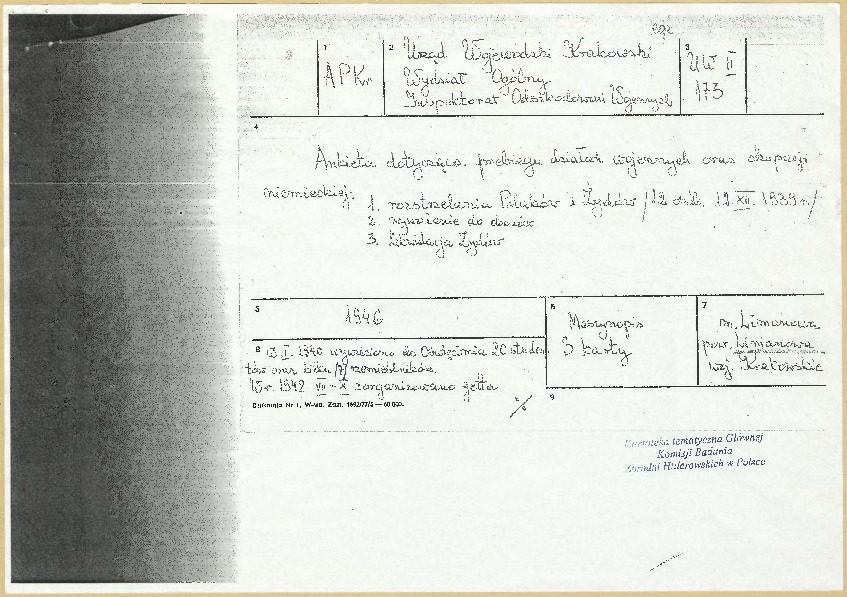 1
APKr
2
Urząd Wojewódzki Krakowski
Wydział Ogólny
Inspektorat Odszkodowań Wojennych
3
UW II
173
4
Ankieta dotycząca przebiegu działań wojennych oraz okupacji
niemieckiej:
1. rozstrzelania Polaków i Żydów /12 osób. 12 XII. 1939 r./
2. wywiezienie do obozów
3. Likwidacja Żydów
5
1946
6
Maszynopis
3 karty
7
m. Limanowa
pow. Limanowa
woj. Krakowskie
8
1940 wywieziono do Oświęcimia 20 studen
tów oraz kilku /?/ rzemieślników.
1942 zorganizowano getta
9
Drukarnia Nr 1, W-wa. Zam. 1692/77/S — 60 000.
Kartoteka tematyczna Głównej
Komisji Badania
Zbrodni Hitlerowskich w Polsce